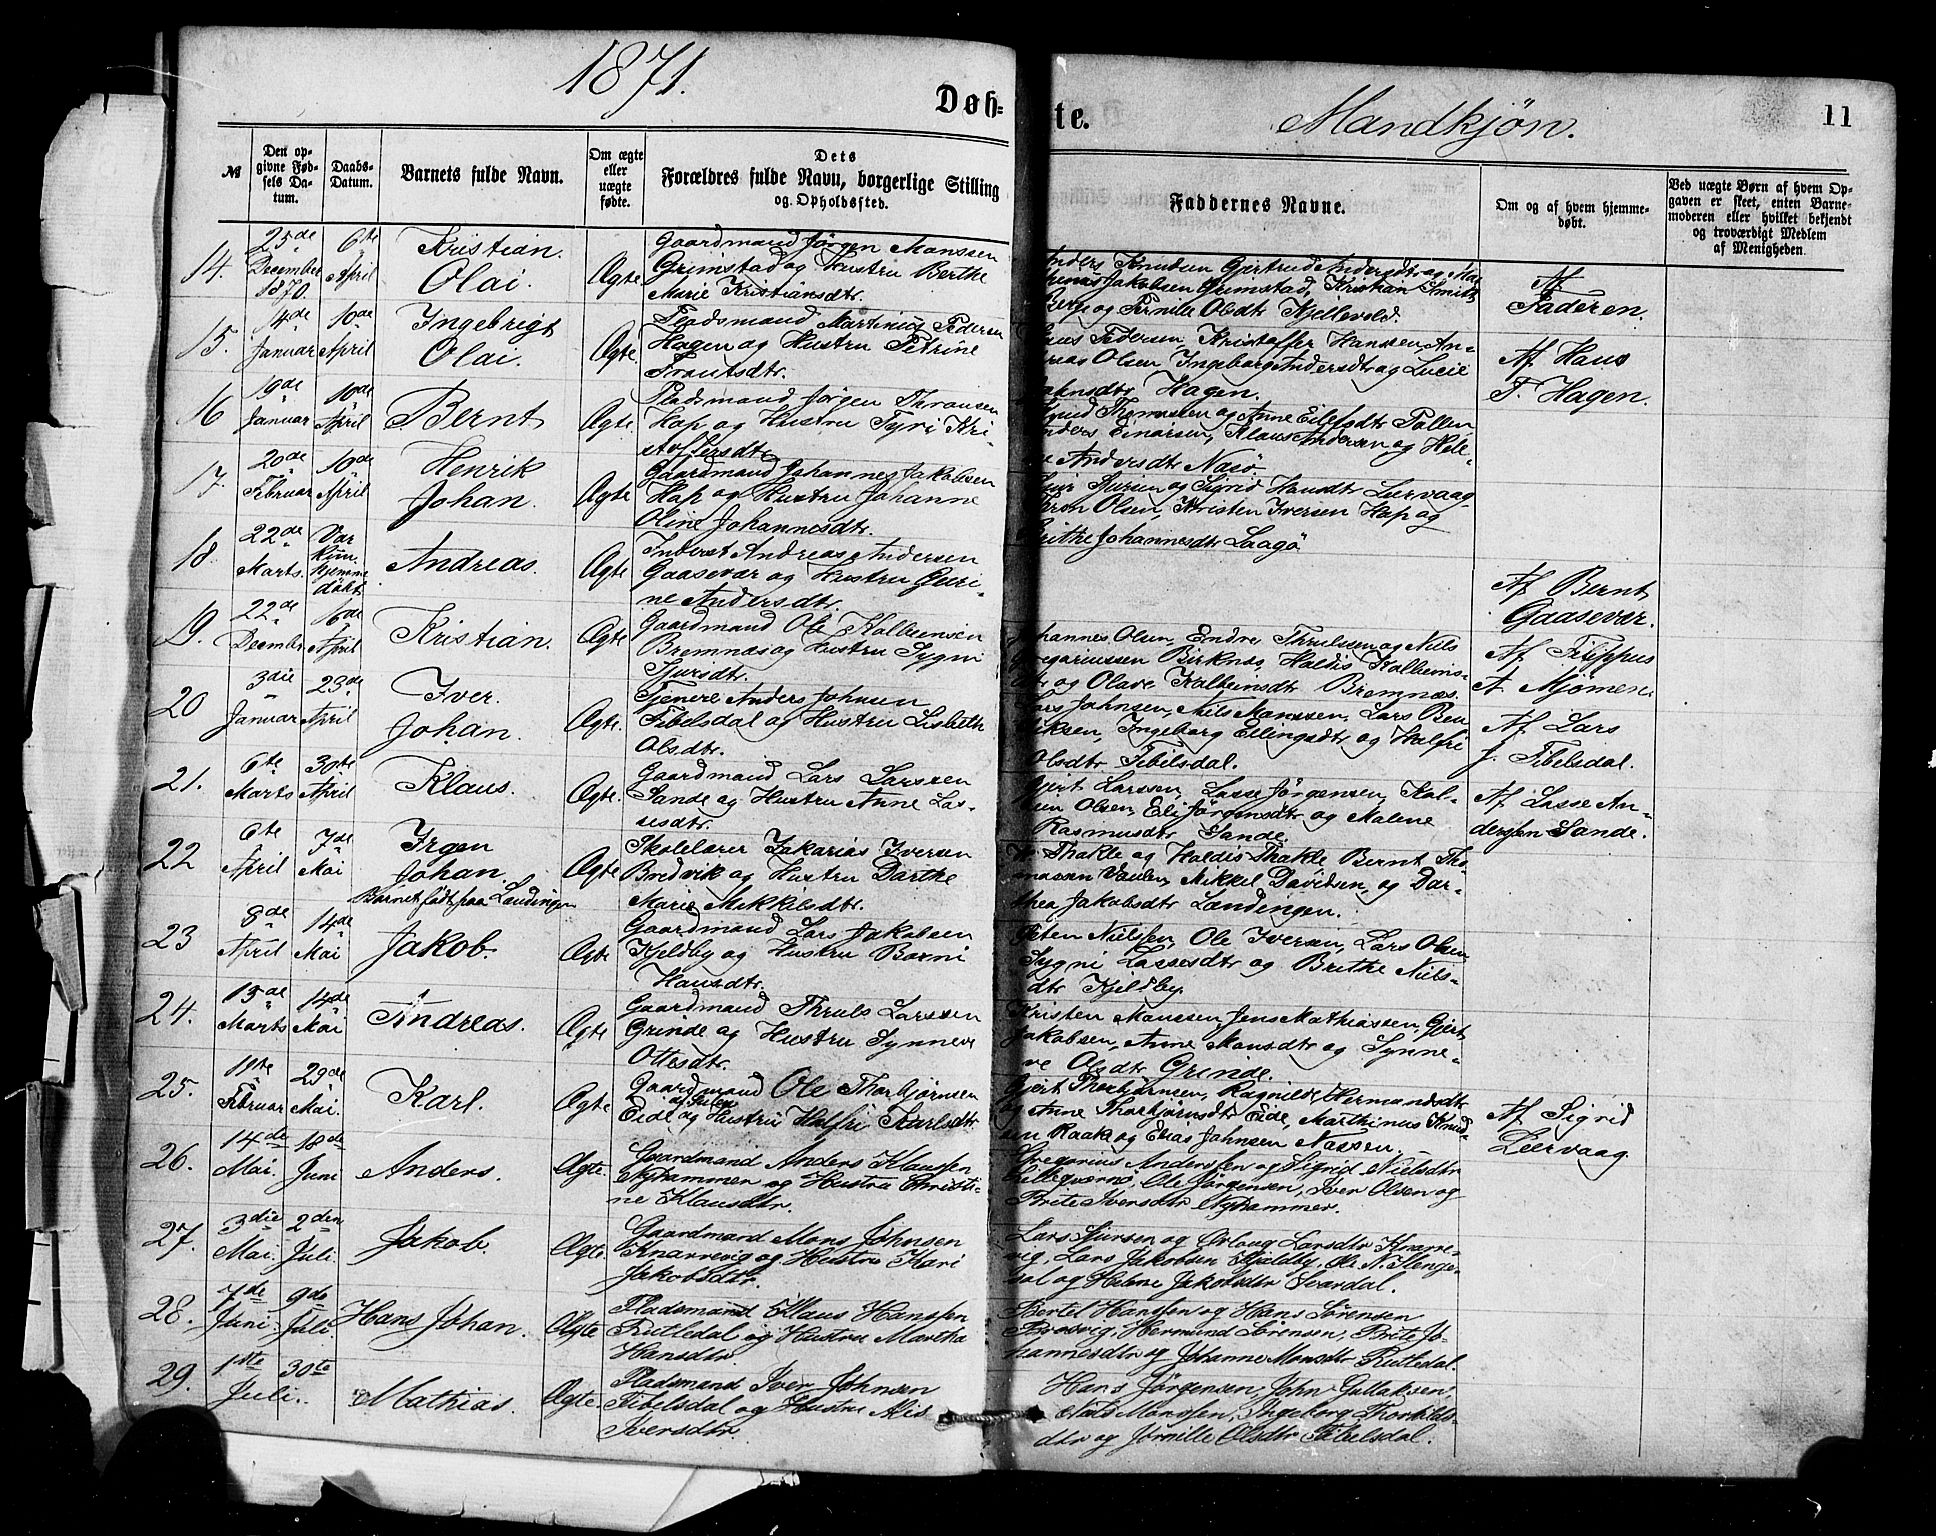 1871.
Døb=
te.
Mandkjøn.
11
№
Den op-
givne Fød-
sels Da-
tum.
Daabs-
Datum.
Barnets fulde Navn.
Om ægte
eller
uægte
fødte.
Dets
Forældres fulde Navn, borgerlige Stilling
og Opholdssted.
Faddernes Navne.
Om og af hvem hjemme-
døbt.
Ved uægte Børn af hvem Op-
gaven er skeet, enten Barne-
moderen eller hvilket bekjendt
og troværdigt Medlem
af Menigheden.
14.
25de
December
1870.
6te
April
Kristian
Olai.
Ægte
Gaardmand Jørgen Monssen
Grimstad og Hustru Berthe
Marie Kristiansdtr.
Anders Knudsen Gjertrud Andersdtr og
Jakobsen Grimstad, Kristian Smith
Berge og Pernille Olsdtr Kjellevold.
Af
Faderen.
15.
14de
Januar
10de
April
Ingebrigt
Olai.
Ægte
Pladsmand Martinus Pedersen
Hagen og Hustru Petrine
Frantsdtr.
Pedersen, Kristoffer Hanssen, An-
dreas Olsen, Ingeborg Andersdtr og Lucie
Hagen.
Af Hans
P. Hagen.
16
19de
Januar
10de
April
Bernt
Ægte.
Pladsmand Jørgen Thronsen
Hop og Hustru Gyri Kri-
stoffersdtr.
Thomassen og Anne Eilefsdtr Pollen
Anders Einarsen, Klaus Andersen og Hele-
ne Andersdtr Nasø.
17.
20de
Februar
10de
April
Henrik
Johan.
Ægte
Gaardmand Johannes Jakobsen
Hop og Hustru Johanne
Oline Johannesdtr.
Sjursen og Sigrid Hansdtr Leervaag
Thron Olsen, Kristen Iversen Hop og
Brithe Johannesdtr Laagø
18.
22de
Marts.
Var
kun
hjemme
døbt
Andreas.
Ægte
Inderst Andreas Andersen
Gaasevær og Hustru Guri-
ne Andersdtr.
Af Bernt
Gaasevær.
19.
22de
December
16de
April
Kristian.
Ægte
Gaardmand Ole Kolbeinsen
Bremnæs og Hustru Sygni
Sjursdtr.
Johannes Olsen, Endre Thrulsen og Niels
Gregoriussen Birknæs, Haldis Kolbeins-
dtr og Olave Kolbeinsdtr Bremnæs.
Af Filippus
A. Mjømen.
20
3die
Januar
23de
April
Iver
Johan.
Ægte.
Tjener Anders Johnsen
Tibelsdal og Hustru Lisbeth
Olsdtr.
Lars Johnsen, Niels Monssen, Lars Ben
diksen, Ingeborg Ellingsdtr og Halfri
Olsdtr Tibelsdal.
Af Lars
J. Tibelsdal.
21.
6te
Marts
30te
April
Klaus.
Ægte.
Gaardmand Lars Larssen
Sande og Hustru Anne Las-
sesdtr.
Gjert Larssen, Lasse Jørgensen, Kol-
Olsen, Eli Jørgensdtr og Malene
Rasmusdtr Sande.
Af Lasse An-
derssen Sande.
22
6te
April
7de
Mai
Irgen
Johan.
Barnet født paa Lendingen
Ægte
Skolelærer Zakarias Iversen
Bredvik og Hustru Dorthe
Marie Mikkelsdtr.
Thakle og Haldis Thakle Bernt Tho-
massen Vaulen, Mikkel Davidsen, og Dor-
thea Jakobsdtr Lendingen.
23
8de
April
14de
Mai
Jakob.
Ægte
Gaardmand Lars Jakobsen
Kjeldby og Hustru Borni
Hansdtr.
Peten Nielsen, Ole Iversen, Lars Olsen
Sygni Lassesdtr og Brithe Niels-
dtr Kjeldby.
24.
13de
Marts
14de
Mai
Andreas.
Ægte
Gaardmand Thruls Larssen
Grinde og Hustru Synneve
Ottesdtr.
Kristen Monsen, Jens Mathiassen, Gjert
Jakobsen, Anne Monsdtr og Synne-
ve Olsdtr Grinde.
25.
19te
Februar
29de
Mai.
Karl.
Ægte
Gaardmand Ole Thorbjørnsen
Eide og Hustru Halfri Karlsdtr
Gjert Thorbjørnsen, Ragnilde Hermandsdtr
og Anne Thorbjørnsdtr Eide, Marthinus Knud-
sen Raak og Elias Johnsen Næssen.
Af Sigrid
Leervaag.
26.
14de
Mai
18de
Juni
Anders.
Ægte.
Gaardmand Anders Klaussen
Nyhammer og Hustru Christi-
ne Klausdtr.
Gregorius Anderssen og Sigrid Nielsdtr
Ole Jørgensen, Iver Olsen og
Brite Iversdtr Nyhammer.
27.
3die
Mai
2den
Juli
Jakob.
Ægte
Gaardmand Mons Johnsen
Knarrevig og Hustru Kari
Jakobsdtr.
Lars Sjursen og Orloug Larsdtr Knarre-
vig, Lars Jakobsen Kjeldby, Ole N. Stenge-
dal og Helene Jakobsdtr Svardal.
28.
7de
Juni
9de
Juli
Hans Johan.
Ægte
Pladsmand Klaus Hanssen
Rutledal og Hustru Martha
Hansdtr
Bertel Hanssen og Hans Sørensen
Brosvig, Hermund Sørensen, Brite Jo-
hannesdtr og Johanne Monsdtr Rutledal.
29.
1ste
Juli
30te
Mathias.
Ægte
Pladsmand Iver Johnsen
Tibelsdal og Hustru Alis
Iversdtr
Hans Jørgensen, John Gullaksen,
Niels Monssen, Ingeborg Thorkilds-
dtr og Jørnille Olsdtr Tibelsdal.